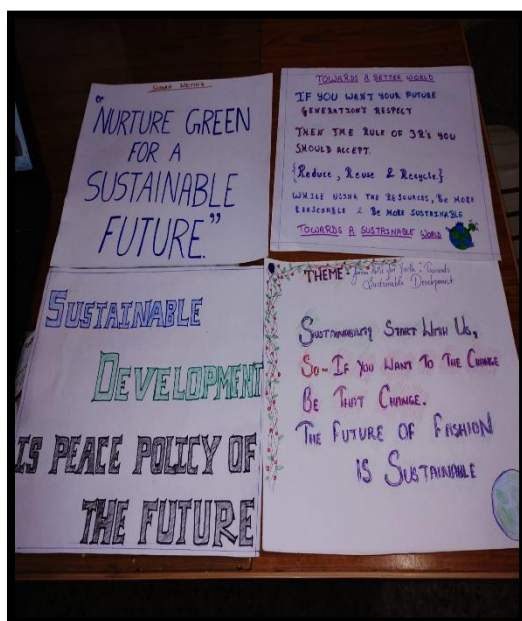 SLOGAN WRITING
"NURTURE GREEN
FOR A
SUSTAINABLE
FUTURE."
TOWARDS A BETTER WORLD
IF YOU WANT YOUR FUTURE
GENERATION'S RESPECT
THEN THE RULE OF 3R's YOU
SHOULD ACCEPT.
{Reduce, Reuse & Recycle.}
WHILE USING THE RESOURCES, BE MORE
REASONABLE & BE MORE SUSTAINABLE
TOWARDS A SUSTAINABLE WORLD
SUSTAINABLE
DEVELOPMENT
IS PEACE POLICY OF
THE FUTURE
THEME - for Youth: Towards
Sustainable Development
SUSTAINABILITY START WITH US,
SO- IF YOU WANT TO THE CHANGE
BE THAT CHANGE.
THE FUTURE OF FASHION
IS SUSTAINABLE